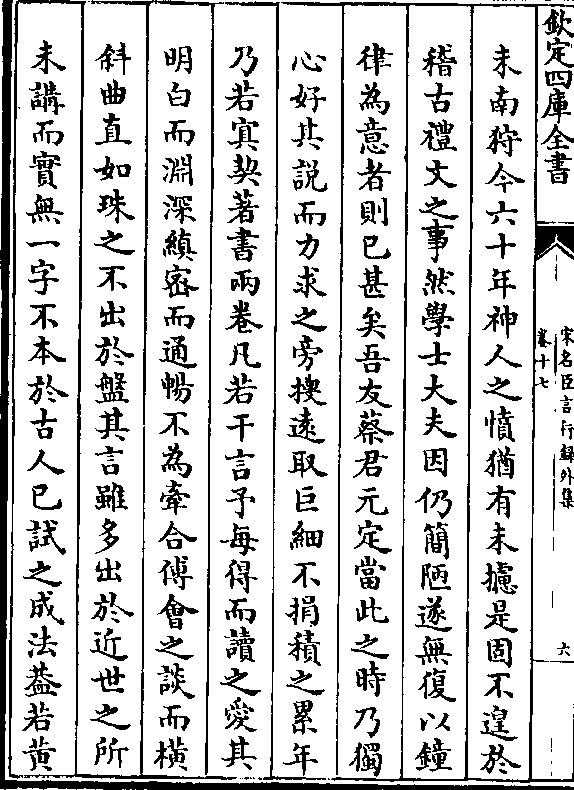 欽定四庫全書
宋名臣言行録外集
卷十七
六
未南狩今六十年神人之憤猶有未攄是固不遑於
稽古禮文之事然學士大夫因仍簡陋遂無復以鐘
律為意者則已甚矣吾友蔡君元定當此之時乃獨
心好其説而力求之旁搜逺取巨細不捐積之累年
乃若㝠契著書兩卷凡若干言予每得而讀之愛其
明白而淵深縝宻而通暢不為牽合傅會之談而橫
斜曲直如珠之不出於盤其言雖多出於近世之所
未講而實無一字不本於古人已試之成法葢若黄